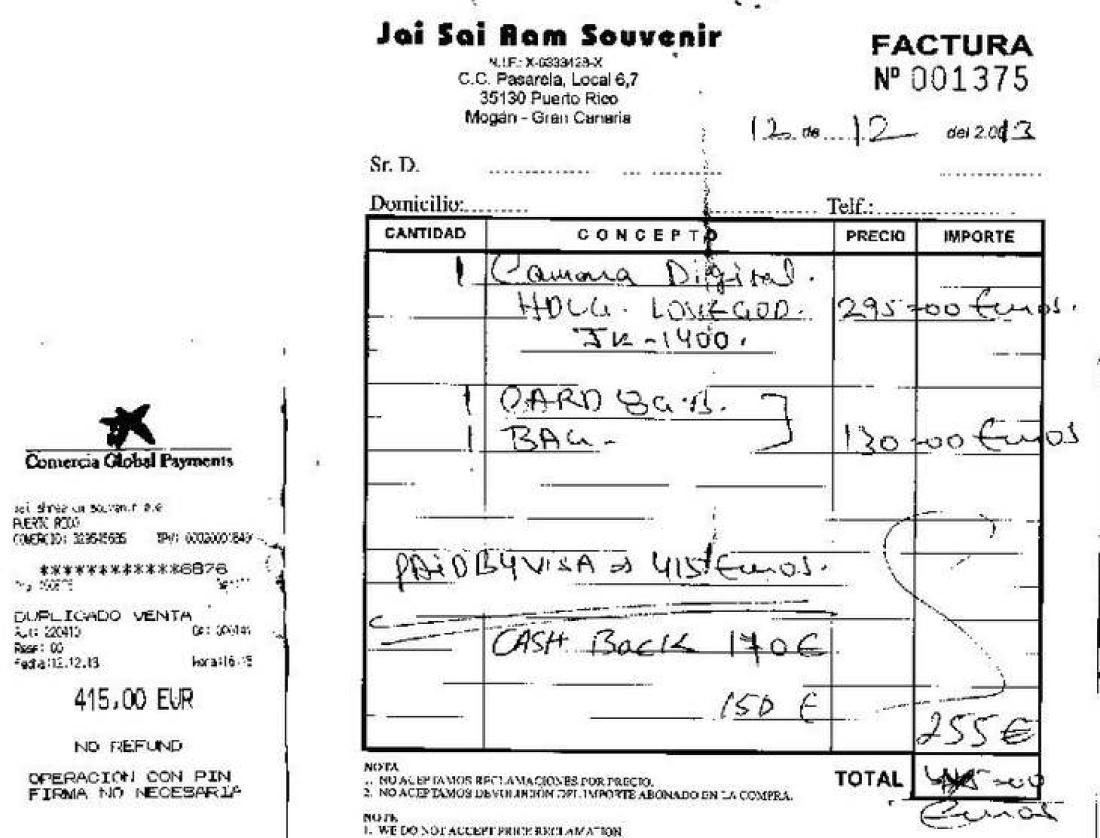 Jai Sai Ram Souvenir
N.I.F.: X-0333428-X
C.C. Pasarela, Local 6,7
35130 Puerto Rico
Mogán - Gran Canaria
FACTURA
Nº 001375
12 de 12 del 2.013
Sr. D.
Domicilio: Telf.:
CANTIDAD CONCEPTO PRECIO IMPORTE
1 Camara Digital.
HDLG. LOVEGOD. 295-00 Euros.
JK-1400.
1 CARD 8G.B.
1 BAG - 130-00 Euros
PAiD BY VISA 415 Euros.
CASH Back 170€
150 €
255€
TOTAL 415-00
Euros
NOTA
1. NO ACEPTAMOS RECLAMACIONES POR PRECIO.
2. NO ACEPTAMOS DEVOLUCION DEL IMPORTE ABONADO EN LA COMPRA.
NOTE
1. WE DO NOT ACCEPT PRICE RECLAMATION
Comercia Global Payments
PUERTO RICO
COMERCIO:
************6876
DUPLICADO VENTA
Aut: 220413
Resp: 00
Fecha:12.12.13 Hora:16:15
415,00 EUR
NO REFUND
OPERACION CON PIN
FIRMA NO NECESARIA